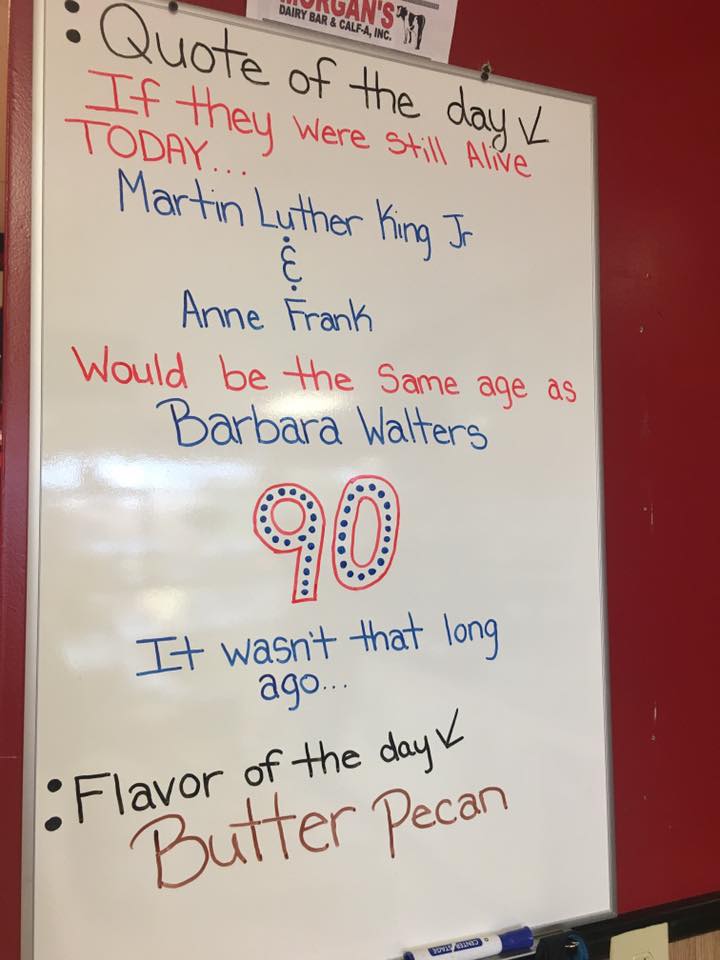 MORGAN'S
DAIRY BAR & CALF-A, INC.
: Quote of the day ↙
If they were Still Alive
TODAY...
Martin Luther King Jr
&
Anne Frank
Would be the Same age as
Barbara Walters
90
It wasn't that long
ago...
: Flavor of the day ↙
Butter Pecan
CENTER STAGE